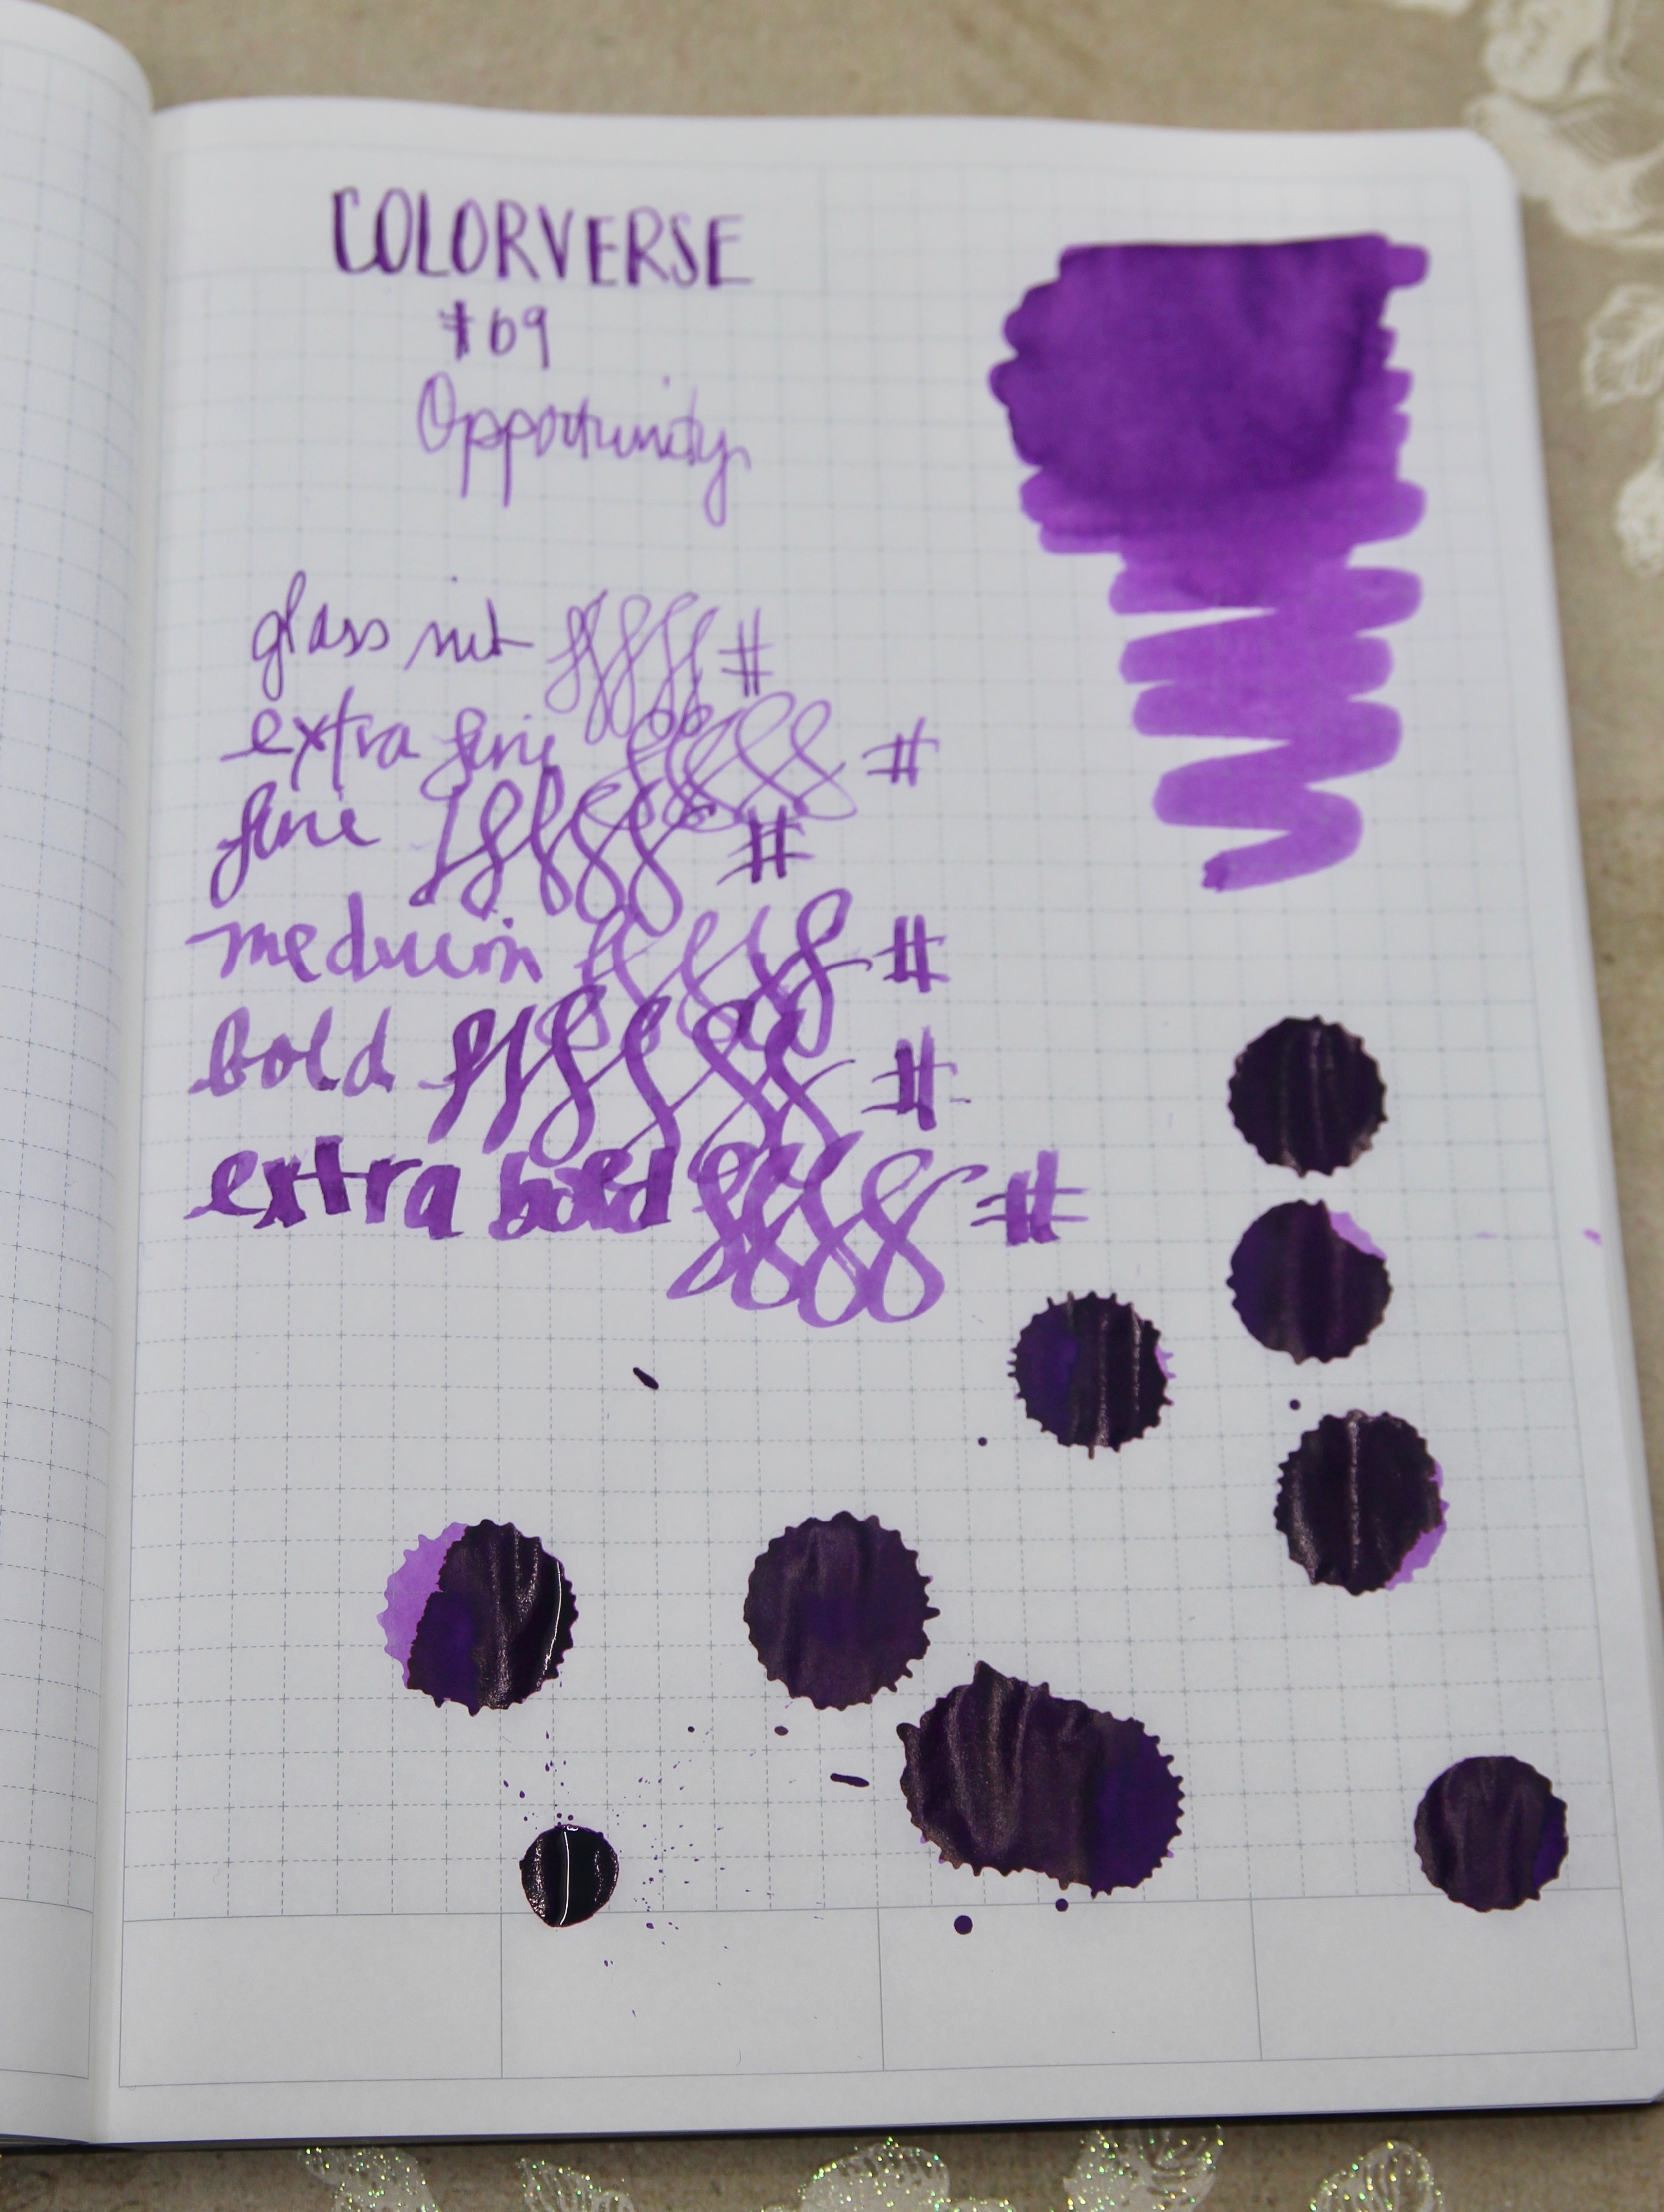 COLORVERSE
#69
Opportunity
glass nib #
extra fine #
fine #
medium #
bold #
extra bold #